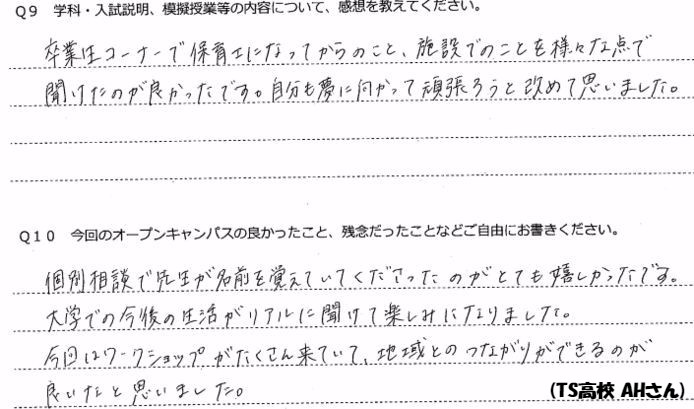 Q9 学科・入試説明、模擬授業等の内容について、感想を教えてください。
卒業生コーナーで保育士になってからのこと、施設でのことを様々な点で
聞けたのが良かったです。自分も夢に向かって頑張ろうと改めて思いました。
Q10 今回のオープンキャンパスの良かったこと、残念だったことなどご自由にお書きください。
個別相談で先生が名前を覚えていてくださったのがとても嬉しかったです。
大学での今後の生活がリアルに聞けて楽しみになりました。
今回はワークショップがたくさん来ていて、地域とのつながりができるのが
良いなと思いました。
(TS高校 AHさん)